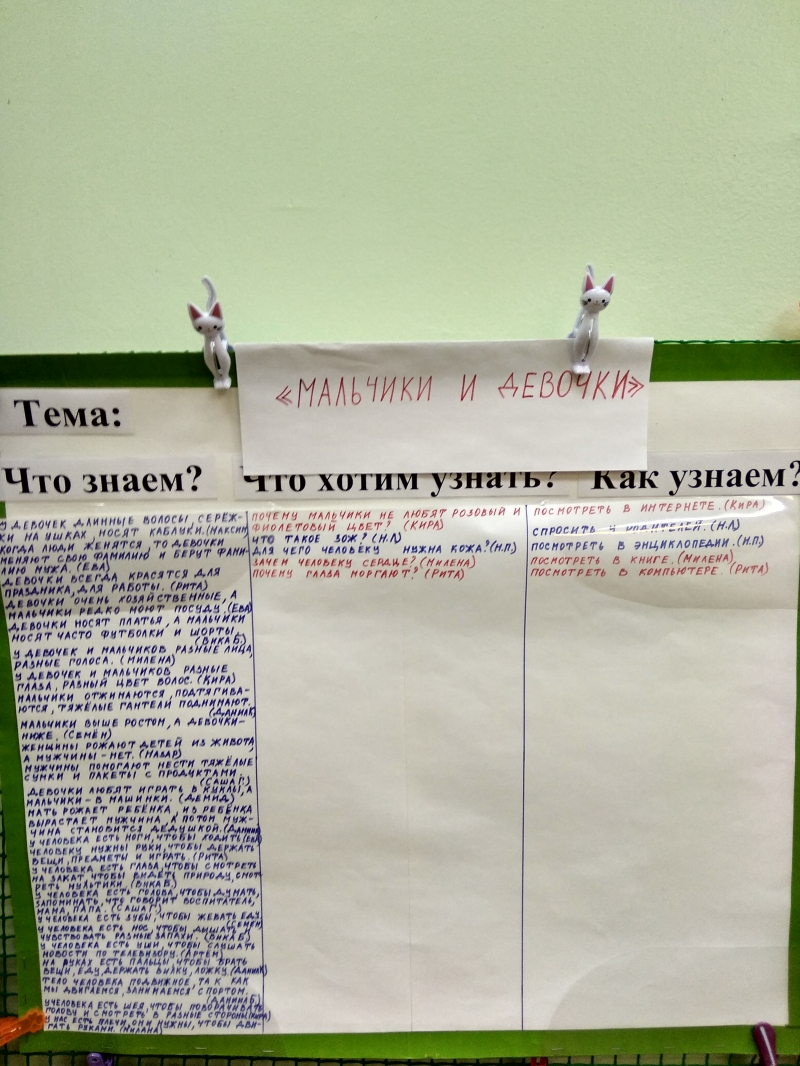 «МАЛЬЧИКИ И ДЕВОЧКИ»
Тема:
Что знаем?
Что хотим узнать?
Как узнаем?
У ДЕВОЧЕК ДЛИННЫЕ ВОЛОСЫ, СЕРЁЖ-
КИ НА УШКАХ, НОСЯТ КАБЛУКИ.(МАКСИМ)
КОГДА ЛЮДИ ЖЕНЯТСЯ ТО ДЕВОЧКИ
МЕНЯЮТ СВОЮ ФАМИЛИЮ И БЕРУТ ФАМИ-
ЛИЮ МУЖА. (ЕВА)
ДЕВОЧКИ ВСЕГДА КРАСЯТСЯ ДЛЯ
ПРАЗДНИКА, ДЛЯ РАБОТЫ. (РИТА)
ДЕВОЧКИ ОЧЕНЬ ХОЗЯЙСТВЕННЫЕ, А
МАЛЬЧИКИ РЕДКО МОЮТ ПОСУДУ.(ЕВА)
ДЕВОЧКИ НОСЯТ ПЛАТЬЯ, А МАЛЬЧИКИ
НОСЯТ ЧАСТО ФУТБОЛКИ И ШОРТЫ.
(ВИКА Б.)
У ДЕВОЧЕК И МАЛЬЧИКОВ РАЗНЫЕ ЛИЦА,
РАЗНЫЕ ГОЛОСА. (МИЛЕНА)
У ДЕВОЧЕК И МАЛЬЧИКОВ РАЗНЫЕ
ГЛАЗА, РАЗНЫЙ ЦВЕТ ВОЛОС. (КИРА)
МАЛЬЧИКИ ОТЖИМАЮТСЯ, ПОДТЯГИВА-
ЮТСЯ, ТЯЖЁЛЫЕ ГАНТЕЛИ ПОДНИМАЮТ.
(ДАНИЛ К)
МАЛЬЧИКИ ВЫШЕ РОСТОМ, А ДЕВОЧКИ-
НИЖЕ. (СЕМЁН)
ЖЕНЩИНЫ РОЖАЮТ ДЕТЕЙ ИЗ ЖИВОТА,
А МУЖЧИНЫ - НЕТ. (НАЗАР)
МУЖЧИНЫ ПОМОГАЮТ НЕСТИ ТЯЖЁЛЫЕ
СУМКИ И ПАКЕТЫ С ПРОДУКТАМИ.
(САША Г.)
ДЕВОЧКИ ЛЮБЯТ ИГРАТЬ В КУКЛЫ, А
МАЛЬЧИКИ - В МАШИНКИ. (ДЕМИД)
МАТЬ РОЖАЕТ РЕБЁНКА, ИЗ РЕБЁНКА
ВЫРАСТАЕТ МУЖЧИНА, А ПОТОМ МУЖ-
ЧИНА СТАНОВИТСЯ ДЕДУШКОЙ.
У ЧЕЛОВЕКА ЕСТЬ НОГИ, ЧТОБЫ ХОДИТЬ(ЕВА)
ЧЕЛОВЕКУ НУЖНЫ РУКИ, ЧТОБЫ ДЕРЖАТЬ
ВЕЩИ, ПРЕДМЕТЫ И ИГРАТЬ. (РИТА)
У ЧЕЛОВЕКА ЕСТЬ ГЛАЗА, ЧТОБЫ СМОТРЕТЬ
НА ЗАКАТ, ЧТОБЫ ВИДЕТЬ ПРИРОДУ, СМОТ-
РЕТЬ МУЛЬТИКИ. (ВИКА Б.)
У ЧЕЛОВЕКА ЕСТЬ ГОЛОВА, ЧТОБЫ ДУМАТЬ,
ЗАПОМИНАТЬ, ЧТО ГОВОРИТ ВОСПИТАТЕЛЬ,
МАМА, ПАПА. (САША Г.)
У ЧЕЛОВЕКА ЕСТЬ ЗУБЫ, ЧТОБЫ ЖЕВАТЬ ЕДУ.
(СЕМЁН)
У ЧЕЛОВЕКА ЕСТЬ НОС, ЧТОБЫ ДЫШАТЬ И
ЧУВСТВОВАТЬ РАЗНЫЕ ЗАПАХИ. (ВИКА Б)
У ЧЕЛОВЕКА ЕСТЬ УШИ, ЧТОБЫ СЛУШАТЬ
НОВОСТИ ПО ТЕЛЕВИЗОРУ. (АРТЁМ)
НА РУКАХ ЕСТЬ ПАЛЬЦЫ, ЧТОБЫ БРАТЬ
ВЕЩИ, ЕДУ, ДЕРЖАТЬ ВИЛКУ, ЛОЖКУ.(ДАНИЛ К)
ТЕЛО ЧЕЛОВЕКА ПОДВИЖНОЕ, ТАК КАК
МЫ ДВИГАЕМСЯ, ЗАНИМАЕМСЯ СПОРТОМ.
(ДАНИЛ Б.)
У ЧЕЛОВЕКА ЕСТЬ ШЕЯ, ЧТОБЫ ПОВОРАЧИВАТЬ
ГОЛОВУ И СМОТРЕТЬ В РАЗНЫЕ СТОРОНЫ(КИРА)
У НАС ЕСТЬ ПЛЕЧИ, ОНИ НУЖНЫ, ЧТОБЫ ДВИ-
ГАТЬ РУКАМИ. (МИЛАНА)
ПОЧЕМУ МАЛЬЧИКИ НЕ ЛЮБЯТ РОЗОВЫЙ И
ФИОЛЕТОВЫЙ ЦВЕТ? (КИРА)
ЧТО ТАКОЕ ЗОЖ? (Н.Л)
ДЛЯ ЧЕГО ЧЕЛОВЕКУ НУЖНА КОЖА?(Н.П.)
ЗАЧЕМ ЧЕЛОВЕКУ СЕРДЦЕ? (МИЛЕНА)
ПОЧЕМУ ГЛАЗА МОРГАЮТ? (РИТА)
ПОСМОТРЕТЬ В ИНТЕРНЕТЕ. (КИРА)
СПРОСИТЬ У РОДИТЕЛЕЙ. (Н.Л)
ПОСМОТРЕТЬ В ЭНЦИКЛОПЕДИИ. (Н.П)
ПОСМОТРЕТЬ В КНИГЕ. (МИЛЕНА)
ПОСМОТРЕТЬ В КОМПЬЮТЕРЕ. (РИТА)